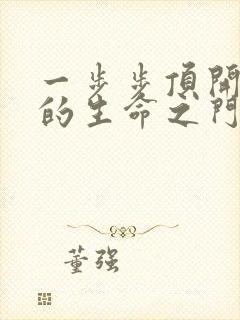 一步步頂開
的生命之門
董强